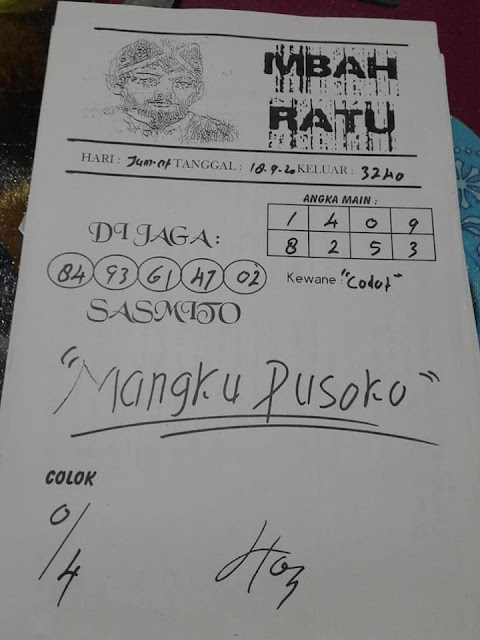 MBAH
RATU
HARI : Jum-at TANGGAL : 18-9-20 KELUAR : 3240
ANGKA MAIN :
1 4 0 9
8 2 5 3
DI JAGA :
84 93 61 47 02
Kewane : "Codot"
SASMITO
"Mangku Pusoko"
COLOK
0/4